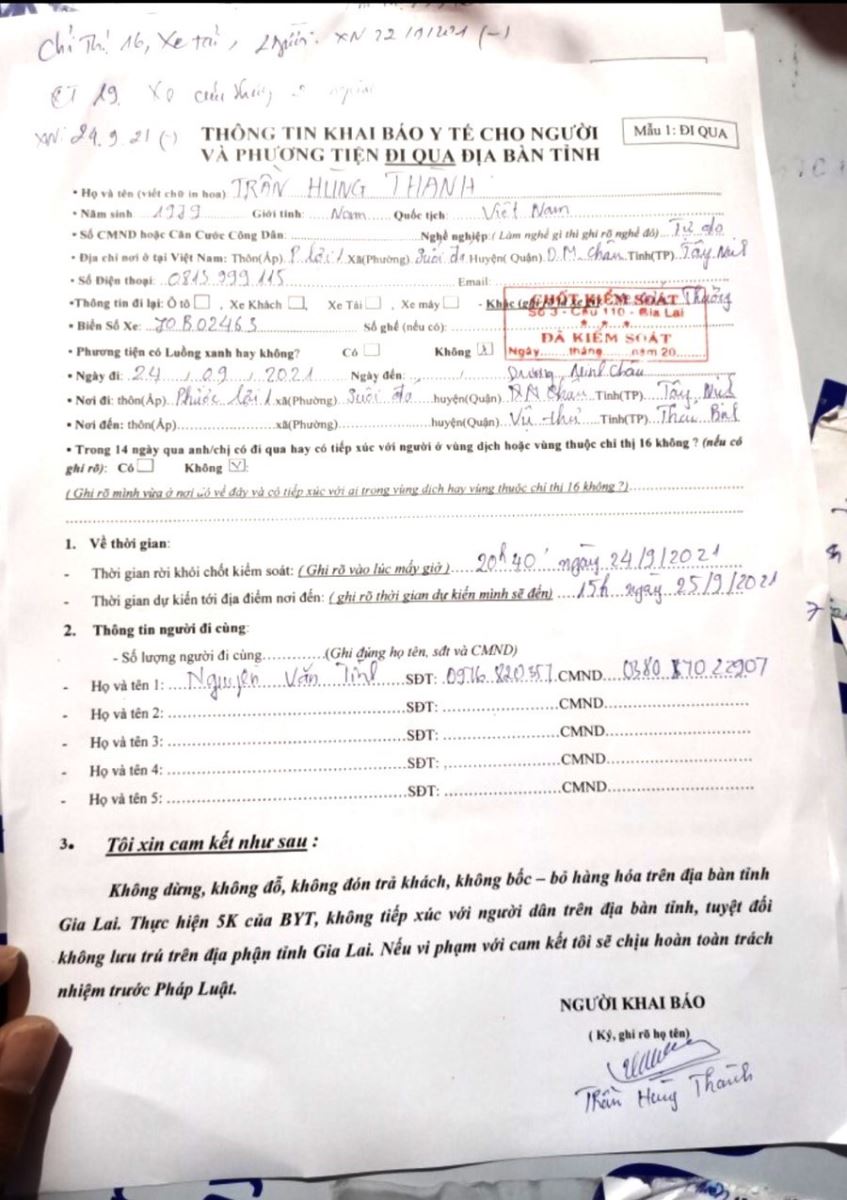 Chỉ Thị 16, Xe tải, 2 Người. XN 22/9/2021 (-)
CT 19. Xe cứu thương
XN: 24.9.21 (-)
THÔNG TIN KHAI BÁO Y TẾ CHO NGƯỜI
VÀ PHƯƠNG TIỆN ĐI QUA ĐỊA BÀN TỈNH
Mẫu 1: ĐI QUA
• Họ và tên (viết chữ in hoa) TRẦN HÙNG THANH
• Năm sinh 1979 Giới tính: Nam Quốc tịch: Việt Nam
• Số CMND hoặc Căn Cước Công Dân: Nghề nghiệp: ( Làm nghề gì thì ghi rõ nghề đó) Tự do
• Địa chỉ nơi ở tại Việt Nam: Thôn(Ấp) P. lợi 1 Xã(Phường) Suối đá Huyện( Quận) D.M. Châu Tỉnh(TP) Tây Ninh
• Số Điện thoại: 0815 999 115 Email:
•Thông tin đi lại: Ô tô , Xe Khách , Xe Tải , Xe máy - Khác (ghi rõ là xe gì) Thường
CHỐT KIỂM SOÁT
Số 3 - Cầu 110 - Gia Lai
ĐÃ KIỂM SOÁT
Ngày tháng năm 20
• Biển Số Xe: 70B02463 Số ghế (nếu có):
• Phương tiện có Luồng xanh hay không? Có Không x
• Ngày đi: 24 / 09 / 2021 Ngày đến: / /
Dương Minh Châu
• Nơi đi: thôn(Ấp) Phước lợi 1 xã(Phường) Suối đá huyện(Quận) DM Châu Tỉnh(TP) Tây Ninh
• Nơi đến: thôn(Ấp) xã(Phường) huyện(Quận) Vũ thư Tỉnh(TP) Thái Bình
• Trong 14 ngày qua anh/chị có đi qua hay có tiếp xúc với người ở vùng dịch hoặc vùng thuộc chỉ thị 16 không ? (nếu có
ghi rõ): Có Không V
( Ghi rõ mình vừa ở nơi nào về đây và có tiếp xúc với ai trong vùng dịch hay vùng thuộc chỉ thị 16 không ?)
1. Về thời gian:
- Thời gian rời khỏi chốt kiểm soát: ( Ghi rõ vào lúc mấy giờ ) 20h 40' ngày 24/9/2021
- Thời gian dự kiến tới địa điểm nơi đến: ( ghi rõ thời gian dự kiến mình sẽ đến) 15h ngày 25/9/2021
2. Thông tin người đi cùng:
- Số lượng người đi cùng (Ghi đúng họ tên, sđt và CMND)
- Họ và tên 1: Nguyễn Văn Tĩnh SĐT: 0976 820 357 CMND 0380 87022907
- Họ và tên 2: SĐT: CMND
- Họ và tên 3: SĐT: CMND
- Họ và tên 4: SĐT: CMND
- Họ và tên 5: SĐT: CMND
3. Tôi xin cam kết như sau :
Không dừng, không đỗ, không đón trả khách, không bốc – bỏ hàng hóa trên địa bàn tỉnh
Gia Lai. Thực hiện 5K của BYT, không tiếp xúc với người dân trên địa bàn tỉnh, tuyệt đối
không lưu trú trên địa phận tỉnh Gia Lai. Nếu vi phạm với cam kết tôi sẽ chịu hoàn toàn trách
nhiệm trước Pháp Luật.
NGƯỜI KHAI BÁO
( Ký, ghi rõ họ tên)
Trần Hùng Thanh